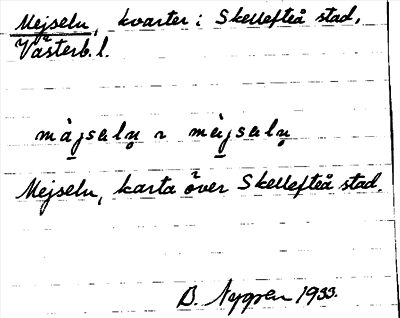 Mejseln, kvarter i Skellefteå stad,
Västerb. l.
màjsaln ~ mèjsaln
Mejseln, karta över Skellefteå stad.
B. Nygren 1933.